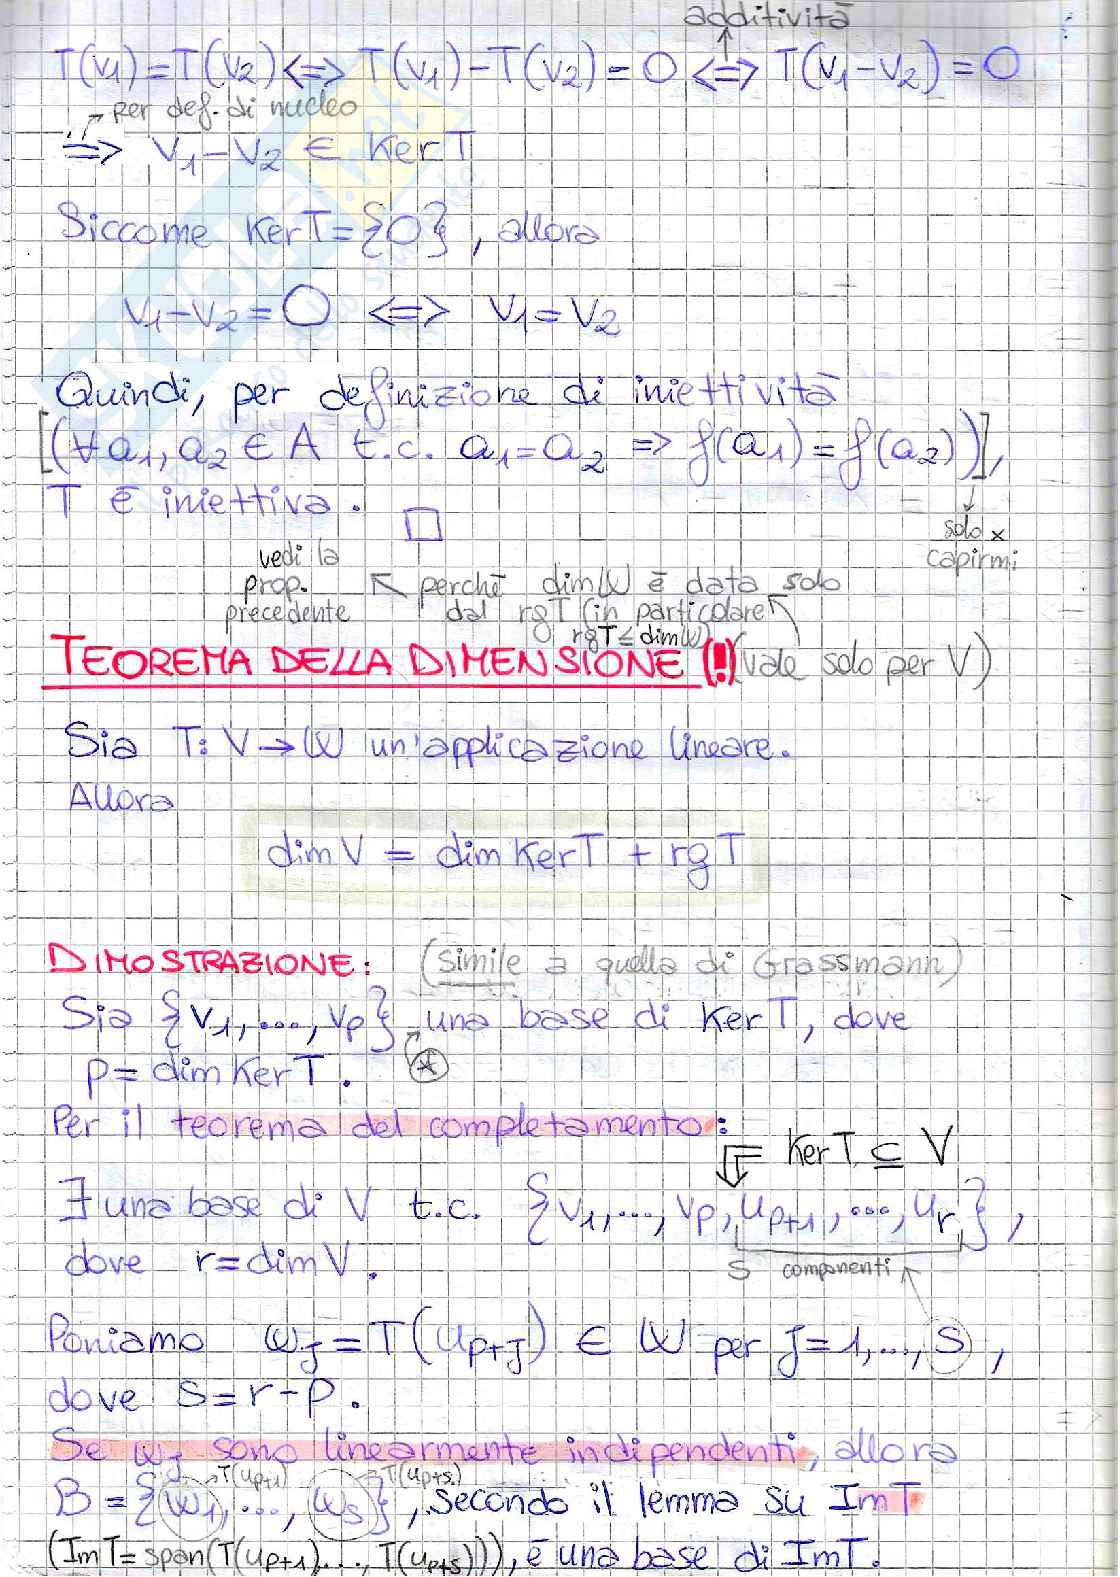 additività
T(v₁)=T(v₂) ⟺ T(v₁)-T(v₂)=0 ⟺ T(v₁-v₂)=0
per def. di nucleo
⟹ v₁-v₂ ∈ KerT
Siccome KerT={0}, allora
v₁-v₂=0 ⟺ v₁=v₂
Quindi, per definizione di iniettività
[(∀a₁,a₂ ∈ A t.c. a₁=a₂ ⇒ f(a₁)=f(a₂))],
T è iniettiva. □
solo x
capirmi
vedi la
prop.
precedente
perchè dimW è data solo
dal rgT (in particolare
rgT≤dimW)
TEOREMA DELLA DIMENSIONE (!) (vale solo per V)
Sia T: V→W un'applicazione lineare.
Allora
dimV = dimKerT + rgT
DIMOSTRAZIONE: (simile a quella di Grassmann)
Sia {v₁,...,vₚ} una base di KerT, dove
p=dimKerT. *
Per il teorema del completamento:
KerT ⊆ V
∃ una base di V t.c. {v₁,...,vₚ,uₚ₊₁,...,uᵣ},
dove r=dimV.
s componenti
Poniamo wⱼ=T(uₚ₊ⱼ) ∈ W per j=1,...,s,
dove s=r-p.
Se wⱼ sono linearmente indipendenti, allora
T(uₚ₊₁) T(uₚ₊ₛ)
B={w₁,...,wₛ}, secondo il lemma su ImT
(ImT=span(T(uₚ₊₁),...,T(uₚ₊ₛ))), è una base di ImT.